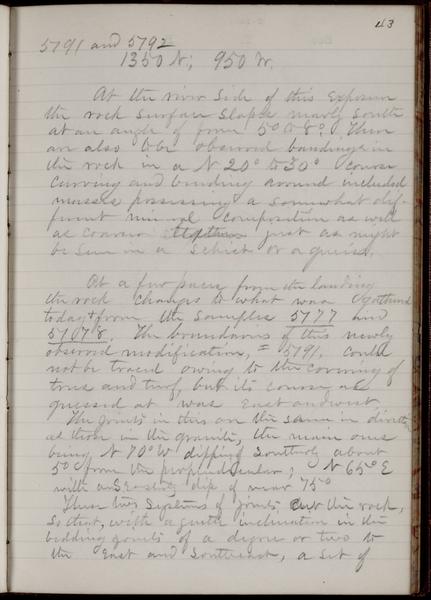 43
5791 and 5792
1350 N; 950 W.
At the river side of this exposure
the rock surface slopes nearly south
at an angle of from 5° to 8°. There
are also to be observed bandings in
the rock in a N 20° to 30° course
curving and bending around included
masses possessing a somewhat dif-
ferent mineral composition as well
as coarser just as might
be seen in a schist or a gneiss.
At a few paces from the landing
the rock changes to what was gathered
today from the samples 5777 and
The boundaries of this newly
observed modification, = 5791, could
not be traced owing to the covering of
trees and turf, but its course as
guessed at was East and west.
The joints in this are the same in direction
as those in the granite, the main ones
being N 70° W dipping southerly about
5° from the perpendicular; N 65° E
with an Easterly dip of near 75°
These two systems of joints cut the rock,
so that, with a gentle inclination in the
bedding joints of a degree or two to
the East and Southeast, a set of